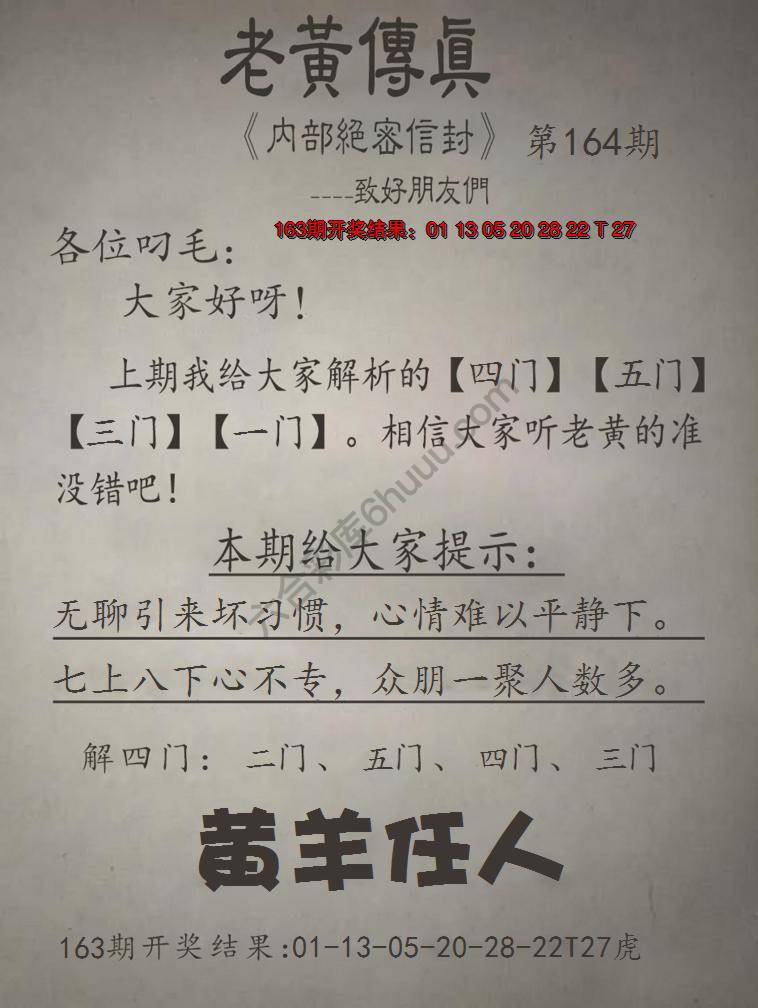 老黃傳眞
《内部絕密信封》 第164期
----致好朋友們
163期开奖结果：01 13 05 20 28 22 T 27
各位叼毛：
大家好呀！
上期我给大家解析的【四门】【五门】
【三门】【一门】。相信大家听老黄的准
没错吧！
本期给大家提示：
无聊引来坏习惯，心情难以平静下。
七上八下心不专，众朋一聚人数多。
解四门：二门、五门、四门、三门
黄羊任人
163期开奖结果:01-13-05-20-28-22T27虎
六合彩库6huuu.com